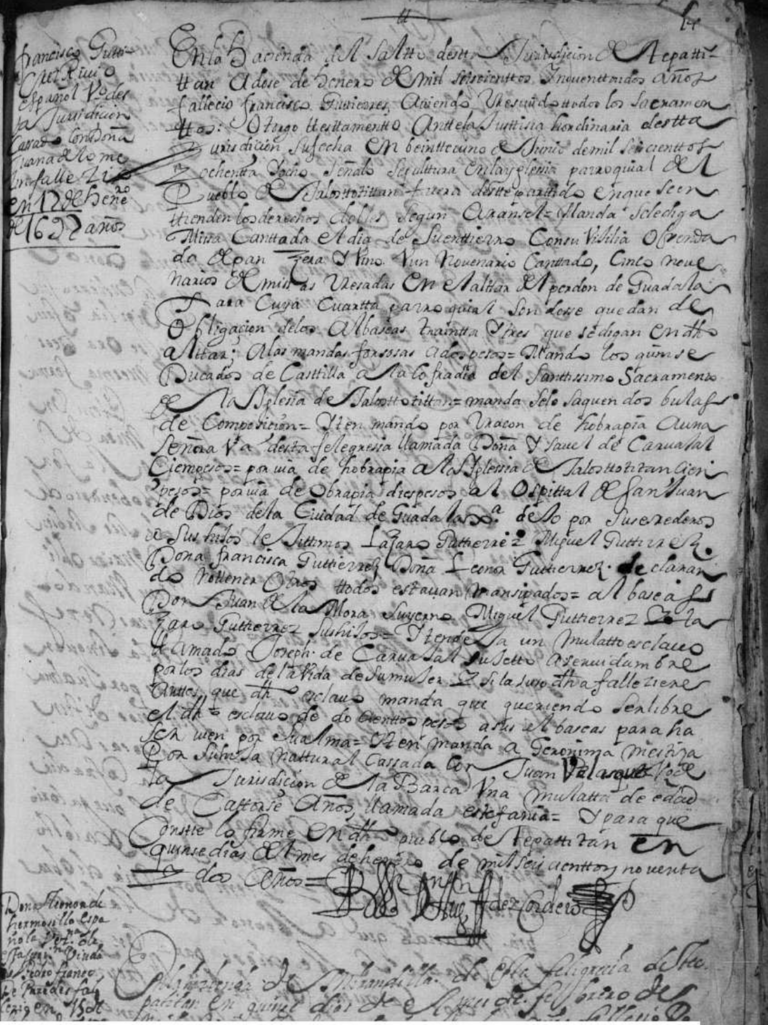 Francisco Gutti-
Español Vº des
ta Juridicion
Cassado con Doña
Juana
fallezio
en 12 de Henero
de 1692 años
En la Hacienda del Saltto destta Jurisdicion de Tepatti-
ttan a dose de henero de mil seiscienttos nouenttaidos años
fallecio francisco Guttierres, Auiendo Reseuido ttodos los sacramen
ttos: Ottorgo ttesttamentto Antte la Justtisia hordinaria destta
Jurisdicion su fecha en beintteiuno de Junio de mil seiscienttos
ochentta Yocho señalo sepulttura en la yglesia parroquial del
Pueblo de Jalostotittan fuera deste partido en que se en
ttienden los derechos dobles segun Aransel= Manda se le diga
Missa Canttada el dia de su enttierro Con su Vixilia Ofrenda
da de pan zera Y vino Y un Novenario Canttado, Cinco nove
narios de missas Resadas en el altar del perdon de Guadala
Xara Cuya Cuartta parroquial son dose quedan de
Obligacion de los Albaseas traintta Ytres que se digan en dho
altar; A las mandas forsosas a dos pesos= Mando los quinse
Ducados de Casttilla a la Cofradia del Santtissimo Sacramento
de la Yglesia de Jalosttotittan= manda se le saquen dos bulas
de Composicion= Ytten mando por Vracon de hobrapia a una
señora Va desta felegresia llamada Doña Ysauel de Caruaxal
Cien pesos= por via de hobrapia a la Yglessia de Jalosttotitan Cien
pesos= por via de obrapia dies pesos al Ospittal de San Juan
de Dios de la Ciudad de Guadalaxª. dexo por sus erederos
a sus hijos lexittimos Lasaro Guttierrez Miguel Guttierrez.
Doña francisca Guttierrez Doña Leonor Guttierrez. declaran
do no ttener Ottros ttodos estauan emansipados= albaseas
Don Juan de la Mora su yerno Miguel Guttierrez Y La
zaro Guttierrez sus hijos= Y tiene un mulatto esclauo
llamado Joseph de Caruaxal sujetto a seruidumbre
por los dias de la Vida de su mujer Y si la susodha falleziere
anttes que dho esclauo manda que queriendo ser libre
el dho esclauo de docienttos pesos a sus albaseas para ha
ser vien por su alma= Yten manda a Geronima mestiza
por su hija nattural Cassada con Juan Velasques Vº de
la Jurisdicion de la Barca Una mulatta de edad
de Cattorse Años, llamada estefania= Y para que
Constte lo firme en dho pueblo de tepattitan en
quinse dias del mes de henero de mil seiscienttos y noventa
y dos Años=
Doña Leonor de
hermosillo Espa
ñola
Viuda
de
En la hazienda de de esta feligresia de Te-
patitan en quinse dias de el mes de febrero de